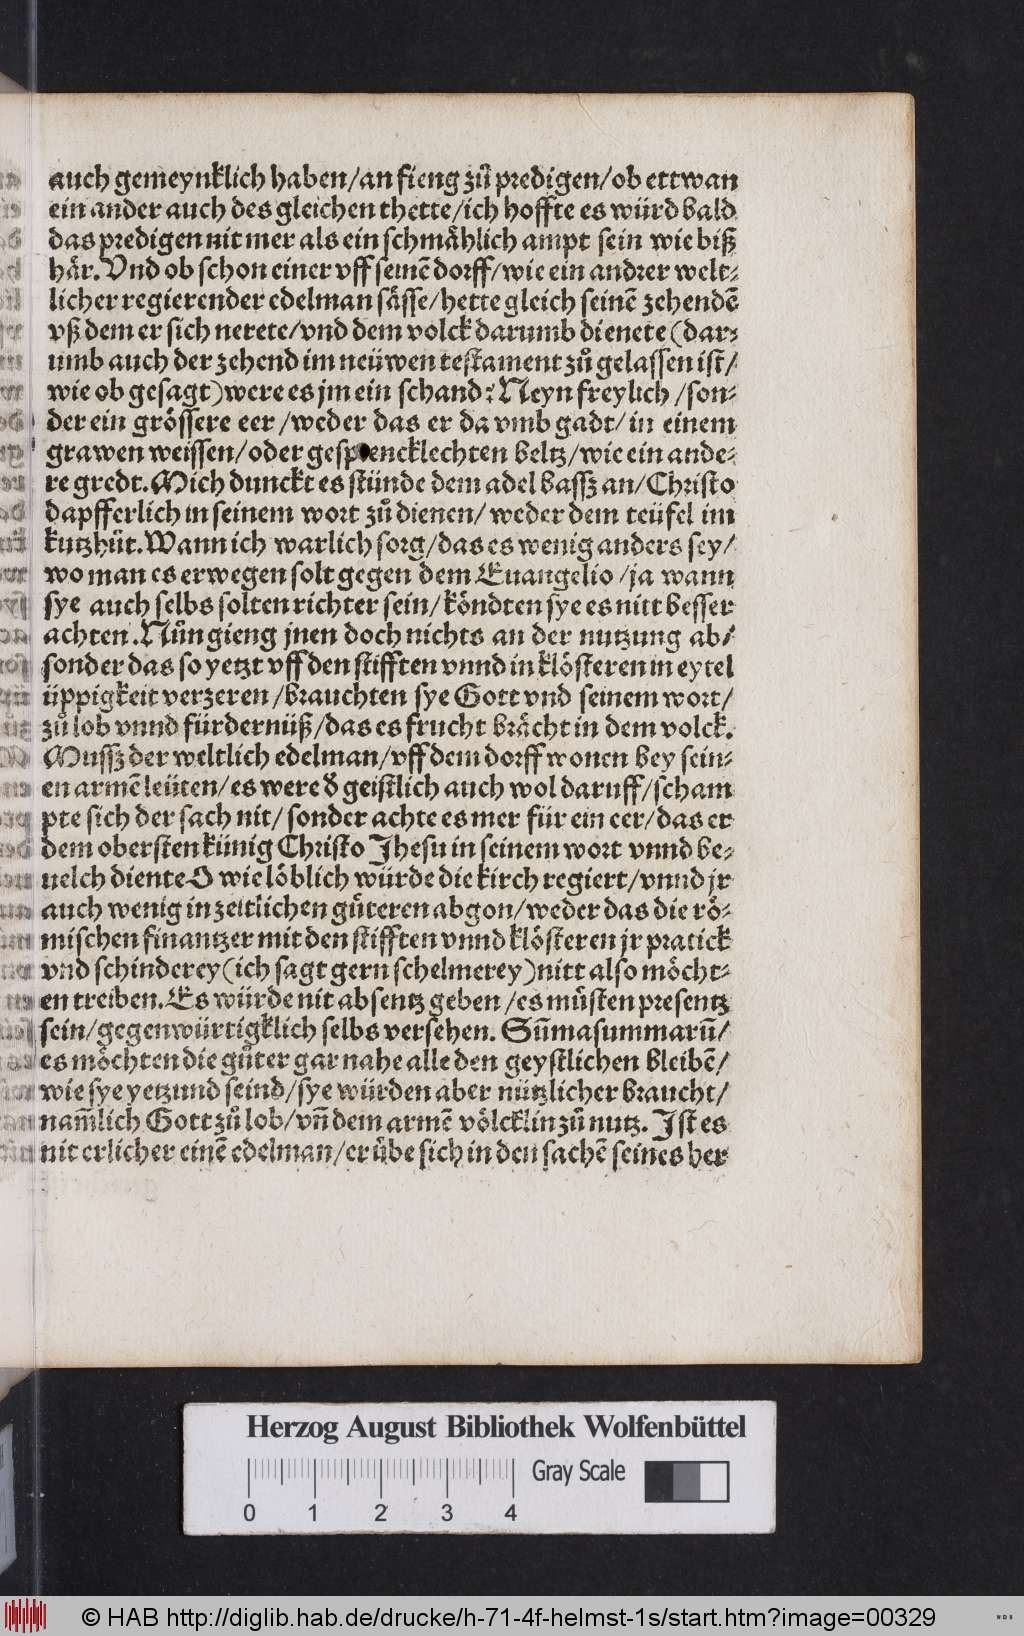 auch gemeynklich haben/an fieng zuͦ predigen/ob ettwan
ein ander auch des gleichen thette/ich hoffte es würd bald
das predigen nit mer als ein schmaͤhlich ampt sein wie biß
haͤr. Vnd ob schon einer vff seinē dorff/wie ein andrer welt⸗
licher regierender edelman saͤsse/hette gleich seinē zehendē
vß dem er sich nerete/vnd dem volck darumb dienete (dar⸗
umb auch der zehend im neüwen testament zuͦ gelassen ist/
wie ob gesagt) were es jm ein schand? Neyn freylich/son⸗
der ein groͤssere eer/weder das er da vmb gadt/in einem
grawen weissen/oder gesprencklechten beltz/wie ein ande⸗
re gredt. Mich dunckt es stünde dem adel bassz an/Christo
dapfferlich in seinem wort zuͦ dienen/weder dem teüfel im
kutzhuͤt. Wann ich warlich sorg/das es wenig anders sey/
wo man es erwegen solt gegen dem Euangelio/ja wann
sye auch selbs solten richter sein/koͤndten sye es nitt besser
achten. Nuͦn gieng jnen doch nichts an der nutzung ab/
sonder das so yetzt vff den stifften vnnd in kloͤsteren in eytel
üppigkeit verzeren/brauchten sye Gott vnd seinem wort/
zuͦ lob vnnd fürdernüß/das es frucht braͤcht in dem volck.
Mussz der weltlich edelman/vff dem dorff wonen bey sein⸗
en armē leüten/es were ď geistlich auch wol daruff/scham
pte sich der sach nit/sonder achte es mer für ein eer/das er
dem obersten künig Christo Jhesu in seinem wort vnnd be⸗
uelch diente O wie loͤblich würde die kirch regiert/vnnd jr
auch wenig in zeitlichen guͤteren abgon/weder das die roͤ⸗
mischen finantzer mit den stifften vnnd kloͤsteren jr pratick
vnd schinderey (ich sagt gern schelmerey) nitt also moͤcht⸗
en treiben. Es würde nit absentz geben/es muͤsten presentz
sein/gegenwürtigklich selbs versehen. Sūmasummarū/
es moͤchten die guͤter gar nahe alle den geystlichen bleibē/
wie sye yetzund seind/sye würden aber nützlicher braucht/
nam̄lich Gott zuͦ lob/vn̄ dem armē voͤlcklin zuͦ nutz. Ist es
nit erlicher einē edelman/er uͤbe sich in den sachē seines her
Herzog August Bibliothek Wolfenbüttel
Gray Scale
0 1 2 3 4
© HAB http://diglib.hab.de/drucke/h-71-4f-helmst-1s/start.htm?image=00329
WDB